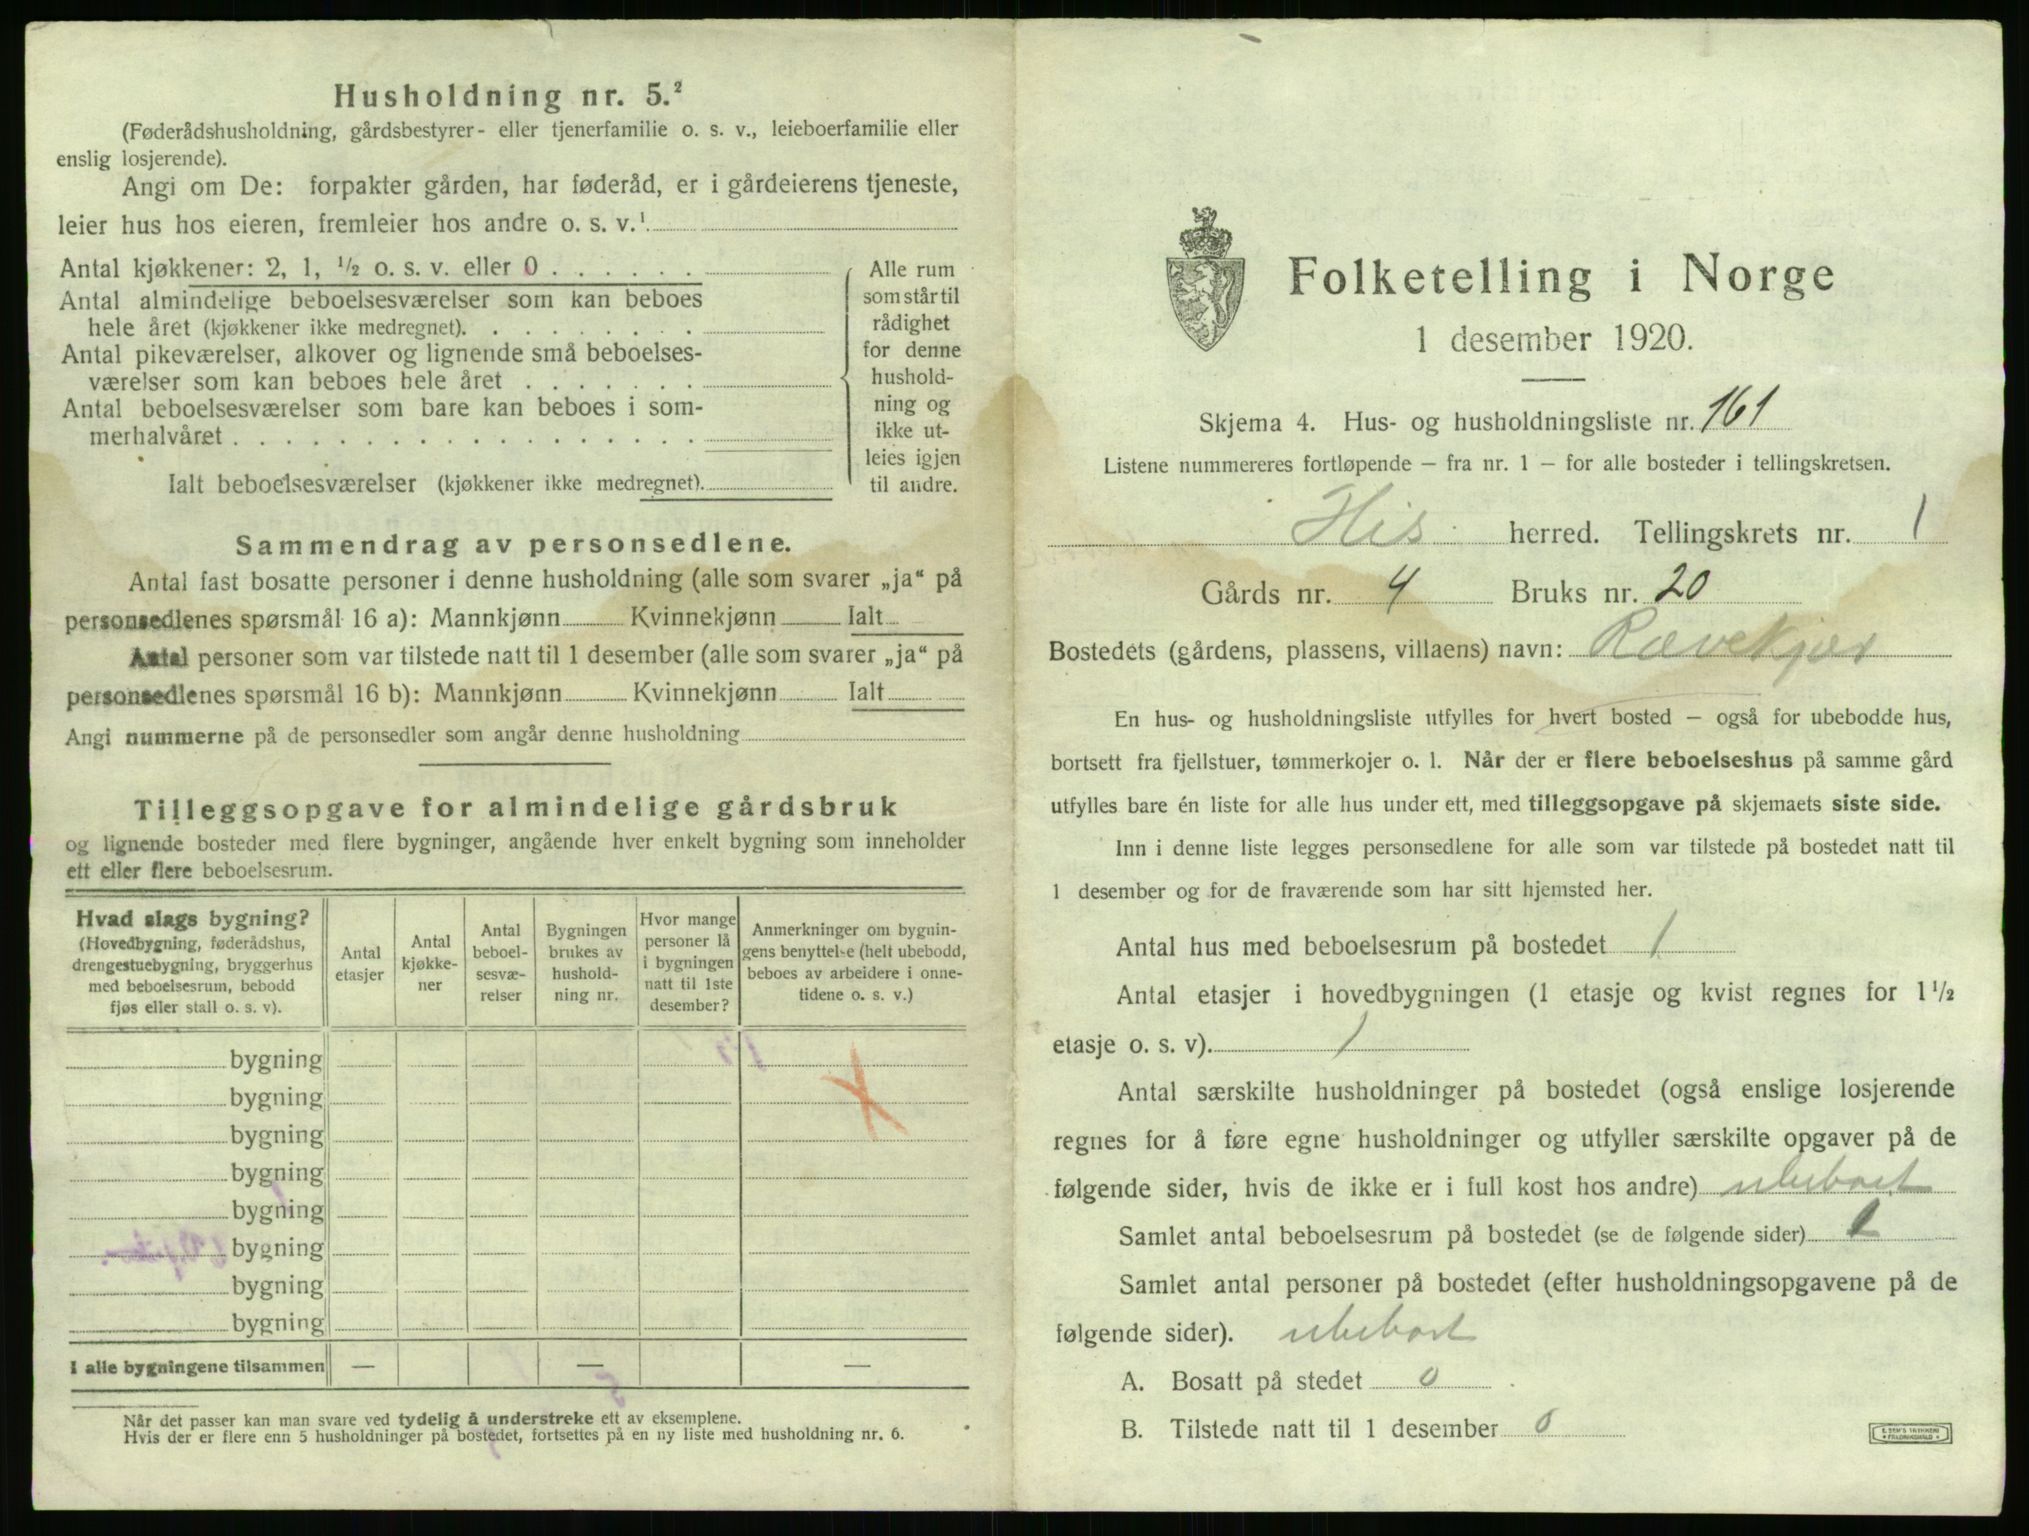 Husholdning nr. 5.²
(Føderådshusholdning, gårdsbestyrer- eller tjenerfamilie o. s. v., leieboerfamilie eller
enslig losjerende).
Angi om De: forpakter gården, har føderåd, er i gårdeierens tjeneste,
leier hus hos eieren, fremleier hos andre o. s. v.¹
Antal kjøkkener: 2, 1, ½ o. s. v. eller 0 . . . . . .
Antal almindelige beboelsesværelser som kan beboes
hele året (kjøkkener ikke medregnet). . . . . . . . .
Antal pikeværelser, alkover og lignende små beboelses-
værelser som kan beboes hele året . . . . . . .
Antal beboelsesværelser som bare kan beboes i som-
merhalvåret . . . . . . . . . . . . . . . . . .
Ialt beboelsesværelser (kjøkkener ikke medregnet).
Alle rum
som står til
rådighet
for denne
hushold-
ning og
ikke ut-
leies igjen
til andre.
Sammendrag av personsedlene.
Antal fast bosatte personer i denne husholdning (alle som svarer „ja“ på
personsedlenes spørsmål 16 a): Mannkjønn Kvinnekjønn Ialt
Antal personer som var tilstede natt til 1 desember (alle som svarer „ja“ på
personsedlenes spørsmål 16 b): Mannkjønn Kvinnekjønn Ialt
Angi nummerne på de personsedler som angår denne husholdning
Tilleggsopgave for almindelige gårdsbruk
og lignende bosteder med flere bygninger, angående hver enkelt bygning som inneholder
ett eller flere beboelsesrum.
Hvad slags bygning?
(Hovedbygning, føderådshus,
drengestuebygning, bryggerhus
med beboelsesrum, bebodd
fjøs eller stall o. s. v).
Antal
etasjer
Antal
kjøkke-
ner
Antal
beboel-
sesvæ-
relser
Bygningen
brukes av
hushold-
ning nr.
Hvor mange
personer lå
i bygningen
natt til 1ste
desember?
Anmerkninger om bygnin-
gens benyttelse (helt ubebodd,
beboes av arbeidere i onne-
tidene o. s. v.)
bygning
bygning
bygning
bygning
bygning
bygning
bygning
bygning
I alle bygningene tilsammen — — —
Når det passer kan man svare ved tydelig å understreke ett av eksemplene.
Hvis der er flere enn 5 husholdninger på bostedet, fortsettes på en ny liste med husholdning nr. 6.
Folketelling i Norge
1 desember 1920.
Skjema 4. Hus- og husholdningsliste nr. 161
Listene nummereres fortløpende – fra nr. 1 – for alle bosteder i tellingskretsen.
His herred. Tellingskrets nr. 1
Gårds nr. 4 Bruks nr. 20
Bostedets (gårdens, plassens, villaens) navn: Rævekjær
En hus- og husholdningsliste utfylles for hvert bosted – også for ubebodde hus,
bortsett fra fjellstuer, tømmerkojer o. l. Når der er flere beboelseshus på samme gård
utfylles bare én liste for alle hus under ett, med tilleggsopgave på skjemaets siste side.
Inn i denne liste legges personsedlene for alle som var tilstede på bostedet natt til
1 desember og for de fraværende som har sitt hjemsted her.
Antal hus med beboelsesrum på bostedet 1
Antal etasjer i hovedbygningen (1 etasje og kvist regnes for 1½
etasje o. s. v). 1
Antal særskilte husholdninger på bostedet (også enslige losjerende
regnes for å føre egne husholdninger og utfyller særskilte opgaver på de
følgende sider, hvis de ikke er i full kost hos andre) ubeboet
Samlet antal beboelsesrum på bostedet (se de følgende sider)
Samlet antal personer på bostedet (efter husholdningsopgavene på de
følgende sider). ubeboet
A. Bosatt på stedet 0
B. Tilstede natt til 1 desember 0